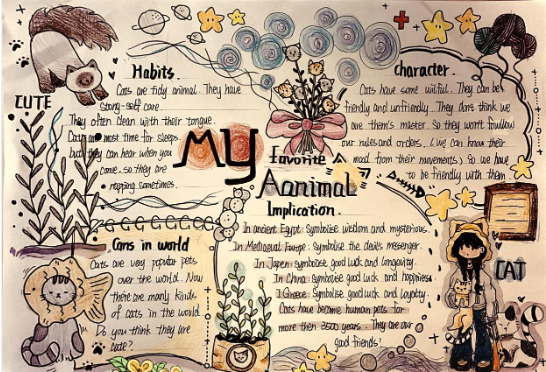 CUTE
Habits.
Cats are tidy animal. They have
stong self care.
They often clean with their tongue.
most time for sleeps.
but they can hear when you
came. so they are
napping sometimes.
My
Favorite
Aanimal
character.
Cats have some wilful. They can be
friendly and unfriendly. They don't think we
are them's master. So they won't
our rules and orders. ( we can know their
mood from their movements). So we have
to be friendly with them
Implication.
In ancient Egypt: symbolise wisdom and mysterious.
In Mediaeval Europe: symbolise the devils messenger.
In Japen: symbolise good luck and longevity.
In China: symbolise good luck and happiness.
I Greece: Symbolise good luck and loyalty.
Cats have become human pets for
more then 3500 years. They are our
good friends!
Cans in world
Cats are very popular pets
over the world. Now
there are many kinds
of cats in the world.
Do you think they are
cute?
CAT